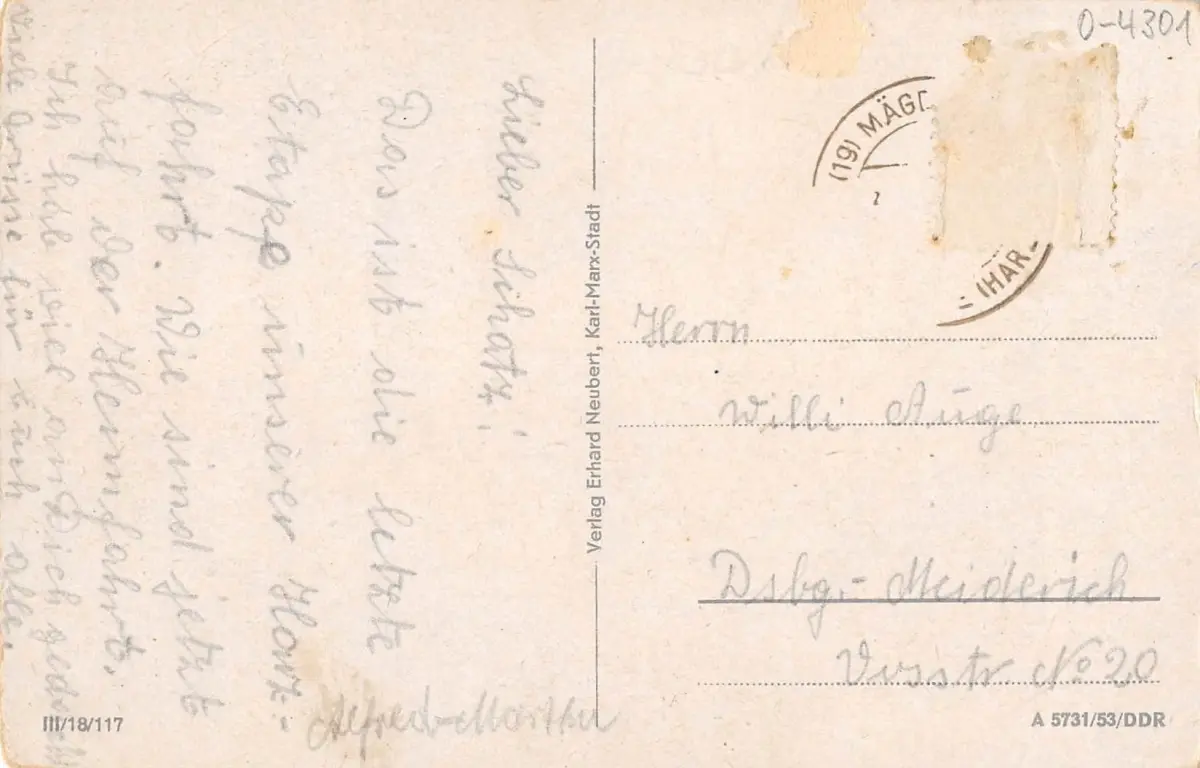 Lieber Schatz!
Das ist die letzte
Etappe unserer Harz-
fahrt. Wie sind jetzt
auf der Heimfahrt.
Ich habe viel an Dich gedacht
Viele Grüsse für Euch alle.
Alfred
Verlag Erhard Neubert, Karl-Marx-Stadt
O-4301
(19) MÄGD
(HAR
Herrn
Willi Auge
Dsbg.- Meiderich
No 20
III/18/117
A 5731/53/DDR